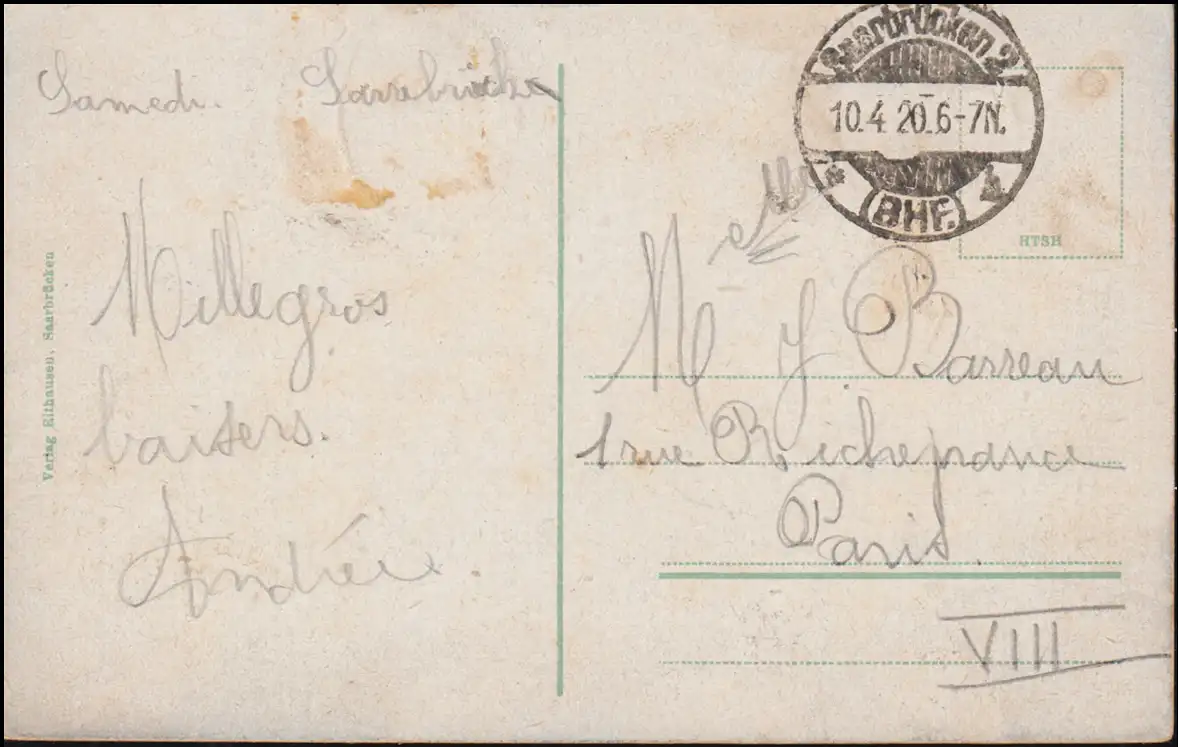 Samedi. Sarrebrücke
Mille gros
baisers.
Andrée.
Verlag Eithausen, Saarbrücken
Saarbrücken 2
10.4.20.6-7N.
(BHF.)
HTSH
M J Barreau
1 rue Richepance
Paris.
VIII